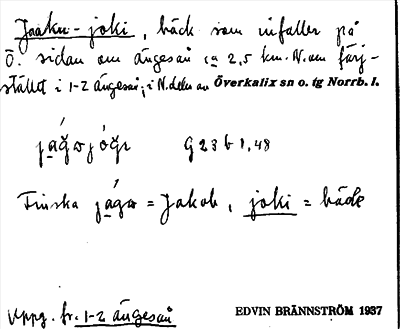 Jaaku-joki, bäck som infaller på
Ö. sidan om ängesån ca 2,5 km. N. om färj-
stället i 1-2 ängesån; i N. delen av Överkalix sn o. tg Norrb. l.
G 23 b 1,48
Finska = Jakob, joki = bäck
Uppg. fr. 1-2 ängesån
EDVIN BRÄNNSTRÖM 1937